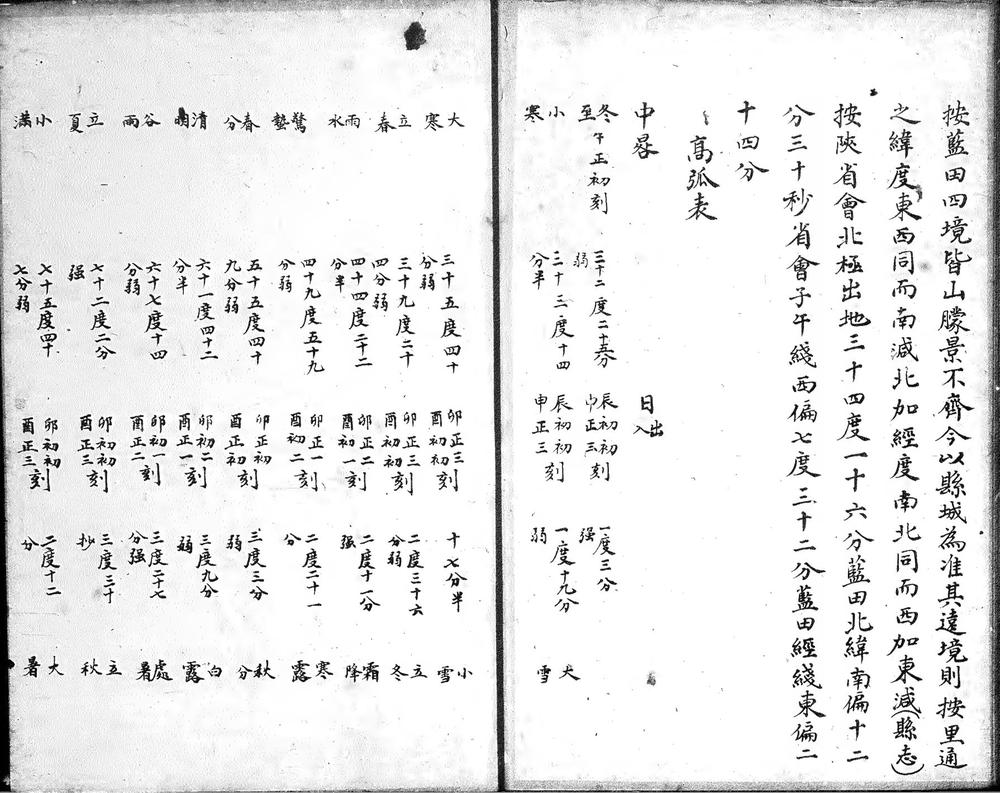 按藍田四境皆山矇景不齊今以縣城為准其遠境則按里通
之緯度東西同而南減北加經度南北同而西加東減(縣志)
按陝省會北極出地三十四度一十六分藍田北緯南偏十二
分三十秒省會子午綫西偏七度三十二分藍田經綫東偏二
十四分
高弧表
中晷 日出入
冬至 午正初刻 三十二度二十五分弱 辰初初刻 申正三刻 一度三分强
小寒 三十三度十四分半 辰初初刻 申正三刻 一度十九分弱 大雪
大寒 三十五度四十分弱 卯正三刻 酉初初刻 十七分半 小雪
立春 三十九度二十四分弱 卯正三刻 酉初初刻 二度三十六分弱 立冬
雨水 四十四度二十二分半 卯正二刻 酉初一刻 二度十一分强 霜降
驚蟄 四十九度五十九分弱 卯正一刻 酉初二刻 二度二十一分 寒露
春分 五十五度四十九分弱 卯正初刻 酉正初刻 三度三分弱 秋分
清明 六十一度四十二分半 卯初二刻 酉正一刻 三度九分弱 白露
谷雨 六十七度十四分弱 卯初一刻 酉正二刻 三度二十七分强 處暑
立夏 七十二度二分强 卯初初刻 酉正三刻 三度三十抄 立秋
小滿 七十五度四十七分弱 卯初初刻 酉正三刻 二度十二分 大暑